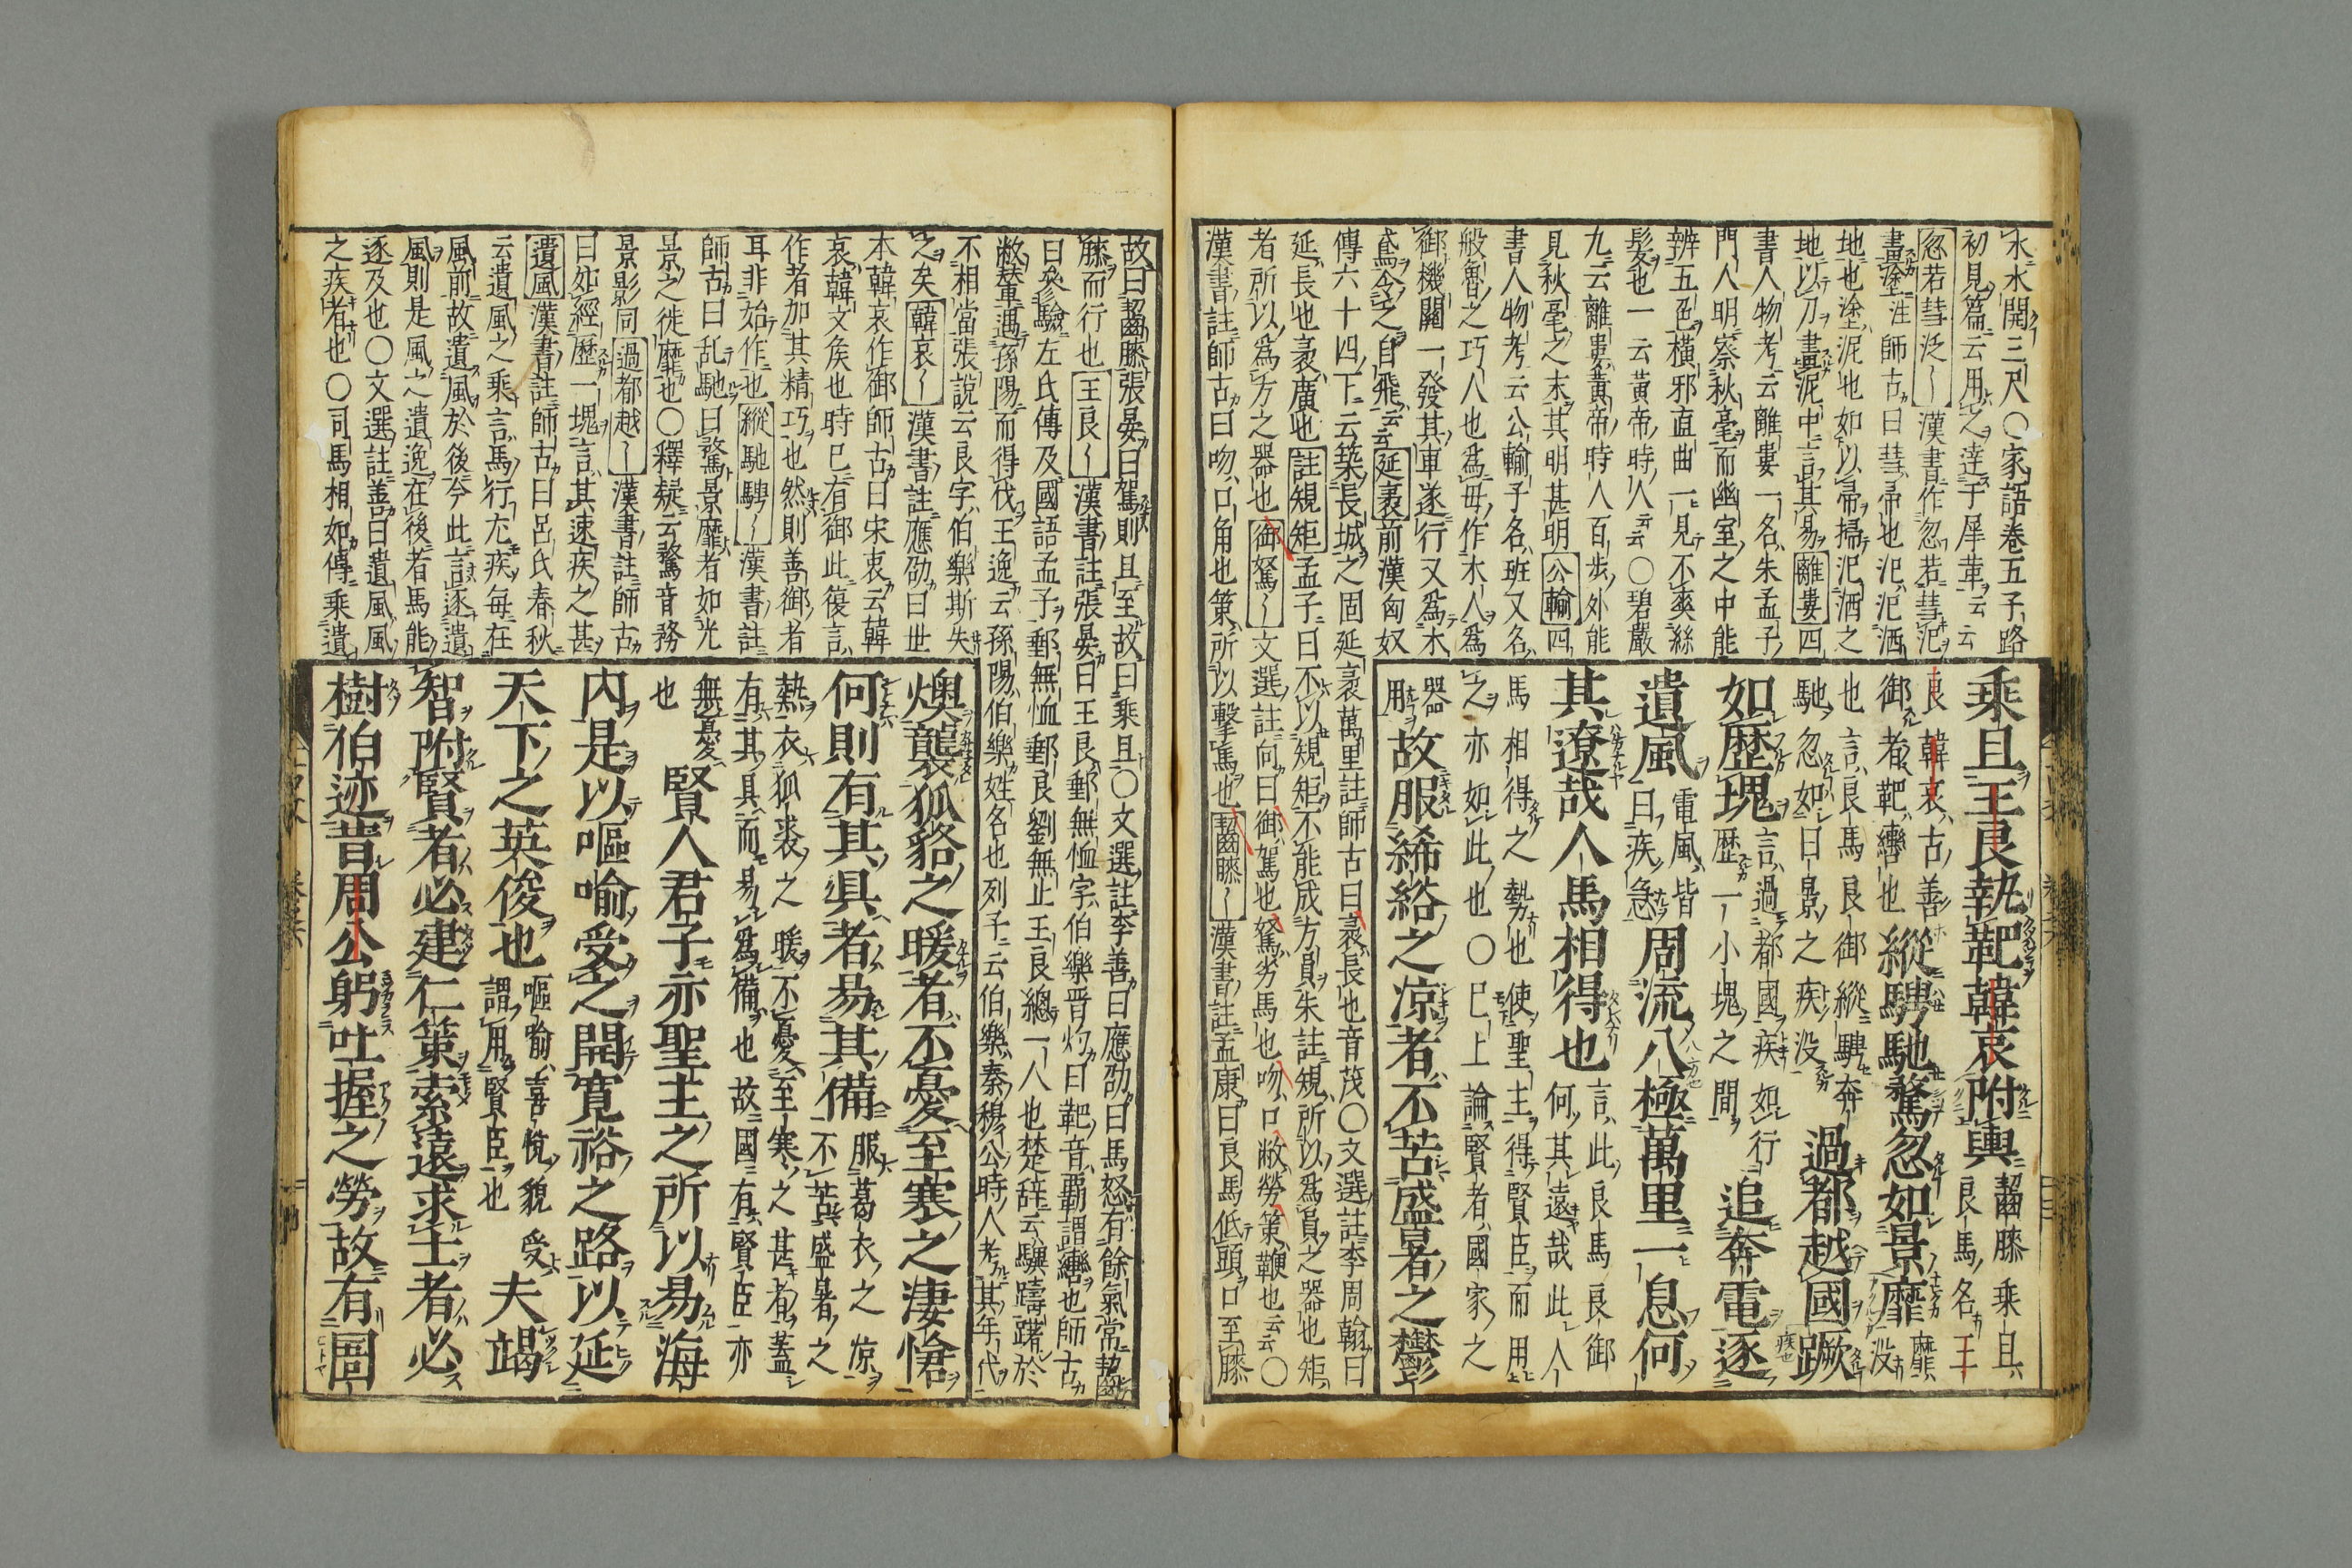 水水開三尺○家語巻五子路
初見篇云用之達于犀革云云
忽若彗泛〡漢書作忽若彗汜
畫塗注師古曰彗帚也汜汜洒
地也塗泥也如以帚掃汜洒之
地以刀畫泥中言其易離婁四
書人物考云離婁一名朱孟子
門人明察秋毫而幽室之中能
辨五色橫邪直曲一見不爽絲
髮也一云黃帝時人云云○碧嚴
九云離婁黃帝時人百步外能
見秋毫之末其明甚明公輸四
書人物考云公輸子名班又名
般魯之巧人也爲毋作木人爲
御機關一發其車遂行又爲木
鳶令之自飛云云延袤前漢匈奴
傳六十四下云築長城之固延袤萬里註師古曰袤長也音茂○文選註李周翰曰
延長也袤廣也註規矩孟子曰不以規矩不能成方員朱註規所以爲員之器也矩
者所以爲方之器也御駑〡文選註向曰御駕也駑劣馬也吻口敝勞策鞭也云云○
漢書註師古曰吻口角也策所以擊馬也齧膝〡漢書註孟康曰良馬低頭口至膝
乘且王良執靶韓哀附輿齧膝乘且
良馬名王
良韓哀古善
御者靶轡也縱騁馳騖忽如景靡靡
没
也言良馬良御縱騁奔
馳忽如日景之疾没過都越國蹶
如歷瑰言過都國疾如行
歷一小塊之間追奔電逐
遺風電風皆
曰疾急周流八極萬里一息何
其遼哉人馬相得也言此良馬良御
何其遠哉此人
馬相得之勢也使聖主得賢臣而用
之亦如此也○巳上論賢者國家之
器
用故服絺綌之凉者不苦盛暑之鬱
故曰齧膝張晏曰駕則且至故曰乘且○文選註李善曰應劭曰馬怒有餘氣常齧
膝而行也王良〡漢書註張晏曰王良郵無恤字伯樂晋灼曰靶音覇謂轡也師古
曰參驗左氏傳及國語孟子郵無恤郵良劉無止王良總一人也楚辞云驥躊躇於
敝輦遇孫陽而得代王逸云孫陽伯樂姓名也列子云伯樂秦穆公時人考其年代
不相當張說云良字伯樂斯失
之矣韓哀〡漢書註應劭曰世
本韓哀作御師古曰宋衷云韓
哀韓文矦也時已有御此復言
作者加其精巧也然則善御者
耳非始作也縱馳騁〡漢書註
師古曰乱馳曰騖景靡者如光
景之徙靡也○釋疑云騖音務
景影同過都越〡漢書註師古
曰如經歷一塊言其速疾之甚
遺風漢書註師古曰呂氏春秋
云遺風之乘言馬行尤疾每在
風前故遺風於後今此言逐遺
風則是風之遺逸在後者馬能
逐及也○文選註善曰遺風風
之疾者也○司馬相如傳乘遺
燠襲狐貉之暖者不憂至寒之淒愴
何則有其具者易其備服葛衣之凉
不苦盛暑之
熱衣狐裘之暖不憂至寒之甚者蓋
有其具而易爲備也故國有賢臣亦
無憂
也賢人君子亦聖主之所以易海
内是以嘔喻受之開寛裕之路以延
天下之英俊也嘔喻喜悅貌受
謂用賢臣也夫竭
智附賢者必建仁策索遠求士者必
樹伯迹昔周公躬吐握之勞故有圄